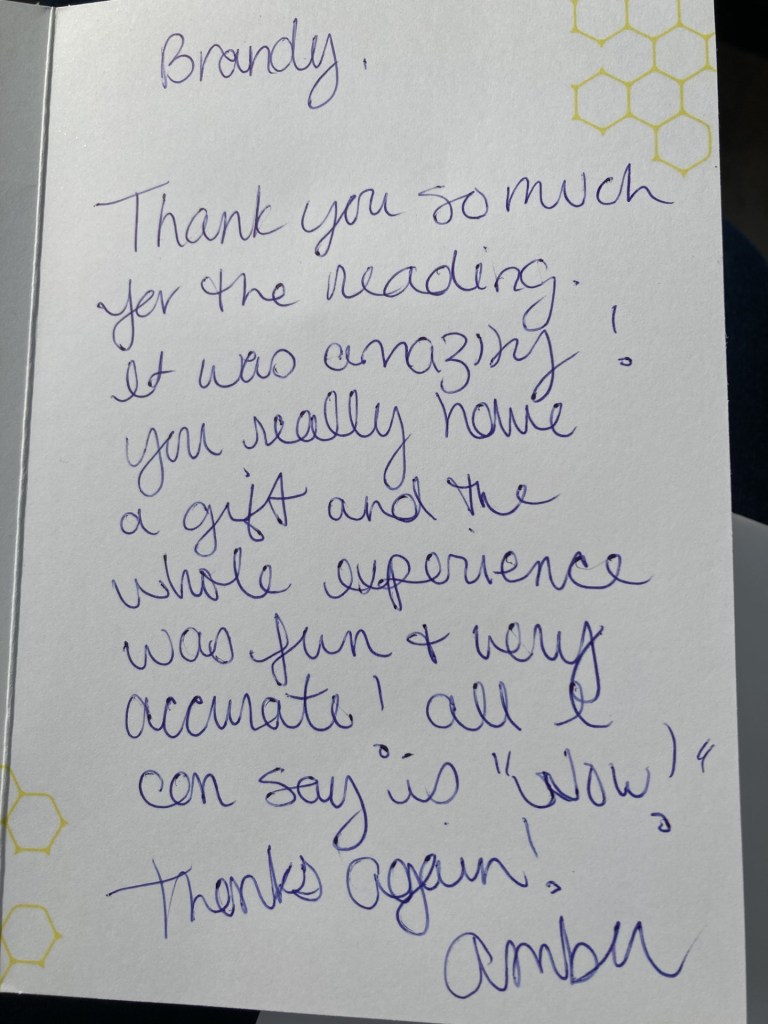 Brandy,
Thank you so much
for the reading.
It was amazing!
you really have
a gift and the
whole experience
was fun + very
accurate! all I
can say is "Wow!"
Thanks again!
Amber